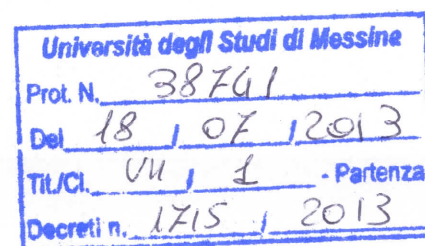 Università degli Studi di Messina
Prot. N. 38741
Del 18 / 07 / 2013
Tit./Cl. VII / 1 - Partenza
Decreti n. 1715 / 2013